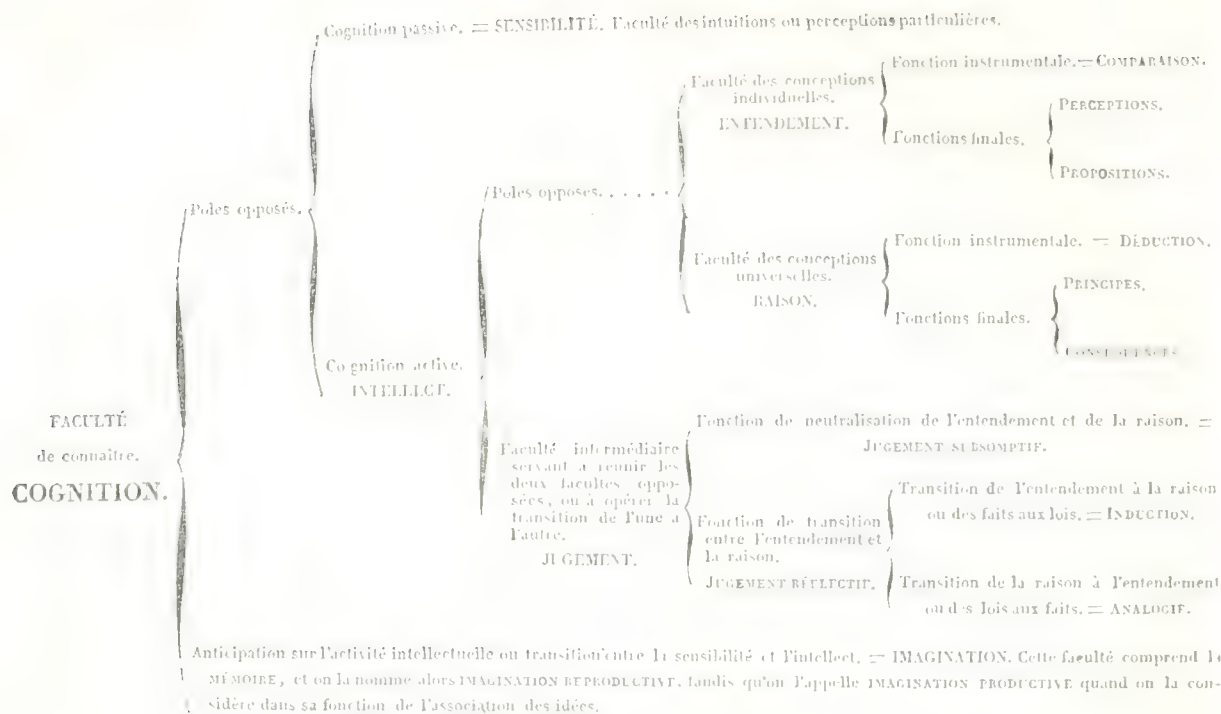 Cognition passive. = SENSIBILITÉ. Faculté des intuitions ou perceptions particulières.
Poles opposés.
Cognition active.
INTELLECT.
Poles opposés. . . . . .
Faculté des conceptions
individuelles.
ENTENDEMENT.
Fonction instrumentale. = COMPARAISON.
Fonctions finales.
PERCEPTIONS.
PROPOSITIONS.
Faculté des conceptions
universelles.
RAISON.
Fonction instrumentale. = DÉDUCTION.
Fonctions finales.
PRINCIPES.
CONSÉQUENCES
FACULTÉ
de connaître.
COGNITION.
Faculté intermédiaire
servant à réunir les
deux facultés oppo-
sées, ou à opérer la
transition de l'une à
l'autre.
JUGEMENT.
Fonction de neutralisation de l'entendement et de la raison. =
JUGEMENT SUBSOMPTIF.
Fonction de transition
entre l'entendement et
la raison.
JUGEMENT RÉFLECTIF.
Transition de l'entendement à la raison
ou des faits aux lois. = INDUCTION.
Transition de la raison à l'entendement
ou des lois aux faits. = ANALOGIE.
Anticipation sur l'activité intellectuelle ou transition entre la sensibilité et l'intellect. = IMAGINATION. Cette faculté comprend la
MÉMOIRE, et on la nomme alors IMAGINATION REPRODUCTIVE, tandis qu'on l'appelle IMAGINATION PRODUCTIVE quand on la con-
sidère dans sa fonction de l'association des idées.